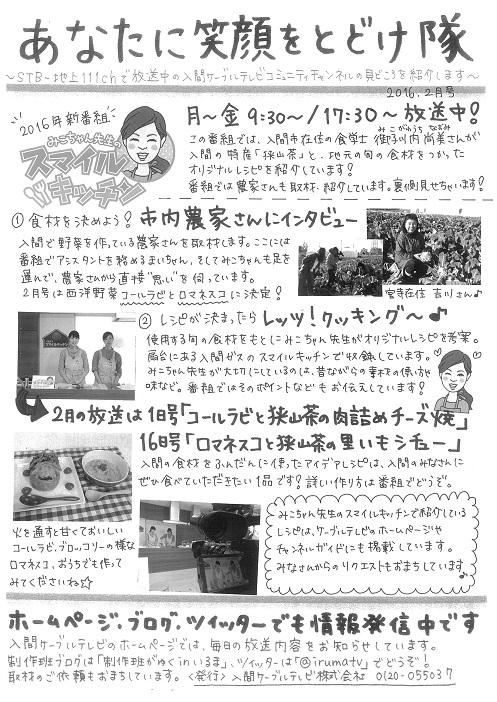 あなたに笑顔をとどけ隊
～STB・地上111chで放送中の入間ケーブルテレビコミュニティチャンネルの見どころを紹介します～
2016.2月号
2016年新番組
みこちゃん先生の
スマイル
キッチン
月～金 9:30～/17:30～放送中!
この番組では、入間市在住の食学士 御子川内尚美さんが
入間の特産「狭山茶」と、地元の旬の食材をつかった
オリジナルレシピを紹介しています!
番組では農家さんも取材・紹介しています。裏側見せちゃいます!
① 食材を決めよう! 市内農家さんにインタビュー
入間で野菜を作っている農家さんを取材します。ここには
番組でアシスタントを務めるまいちゃん、そしてみこちゃんも足を
運んで、農家さんから直接"思い"を伺っています。
2月号は西洋野菜コールラビとロマネスコに決定!
宮寺在住 吉川さん♪
② レシピが決まったら レッツ!クッキング～♪
使用する旬の食材をもとにみこちゃん先生がオリジナルレシピを考案。
扇台にある入間ガスのスマイルキッチンで収録しています。
みこちゃん先生が大切にしているのは、昔ながらの素材の使い方や
味など。番組ではそのポイントなどもお伝えしています!
2月の放送は1日号「コールラビと狭山茶の肉詰めチーズ焼」
16日号「ロマネスコと狭山茶の里いもシチュー」
入間の食材をふんだんに使ったアイデアレシピは、入間のみなさんに
ぜひ食べていただきたい1品です!詳しい作り方は番組でどうぞ。
火を通すと甘くておいしい
コールラビ、ブロッコリーの様な
ロマネスコ、おうちでも作って
みてくださいね☆
みこちゃん先生のスマイルキッチンで紹介している
レシピは、ケーブルテレビのホームページや
チャンネルガイドにも掲載しています。
みなさんからのリクエストもおまちしています♪
ホームページ、ブログ、ツイッターでも情報発信中です
入間ケーブルテレビのホームページでは、毎日の放送内容をお知らせしています。
制作班ブログは「制作班がゆくinいるま」、ツイッターは「@irumatv」でどうぞ!
取材のご依頼もおまちしています。<発行>入間ケーブルテレビ株式会社 0120-055037